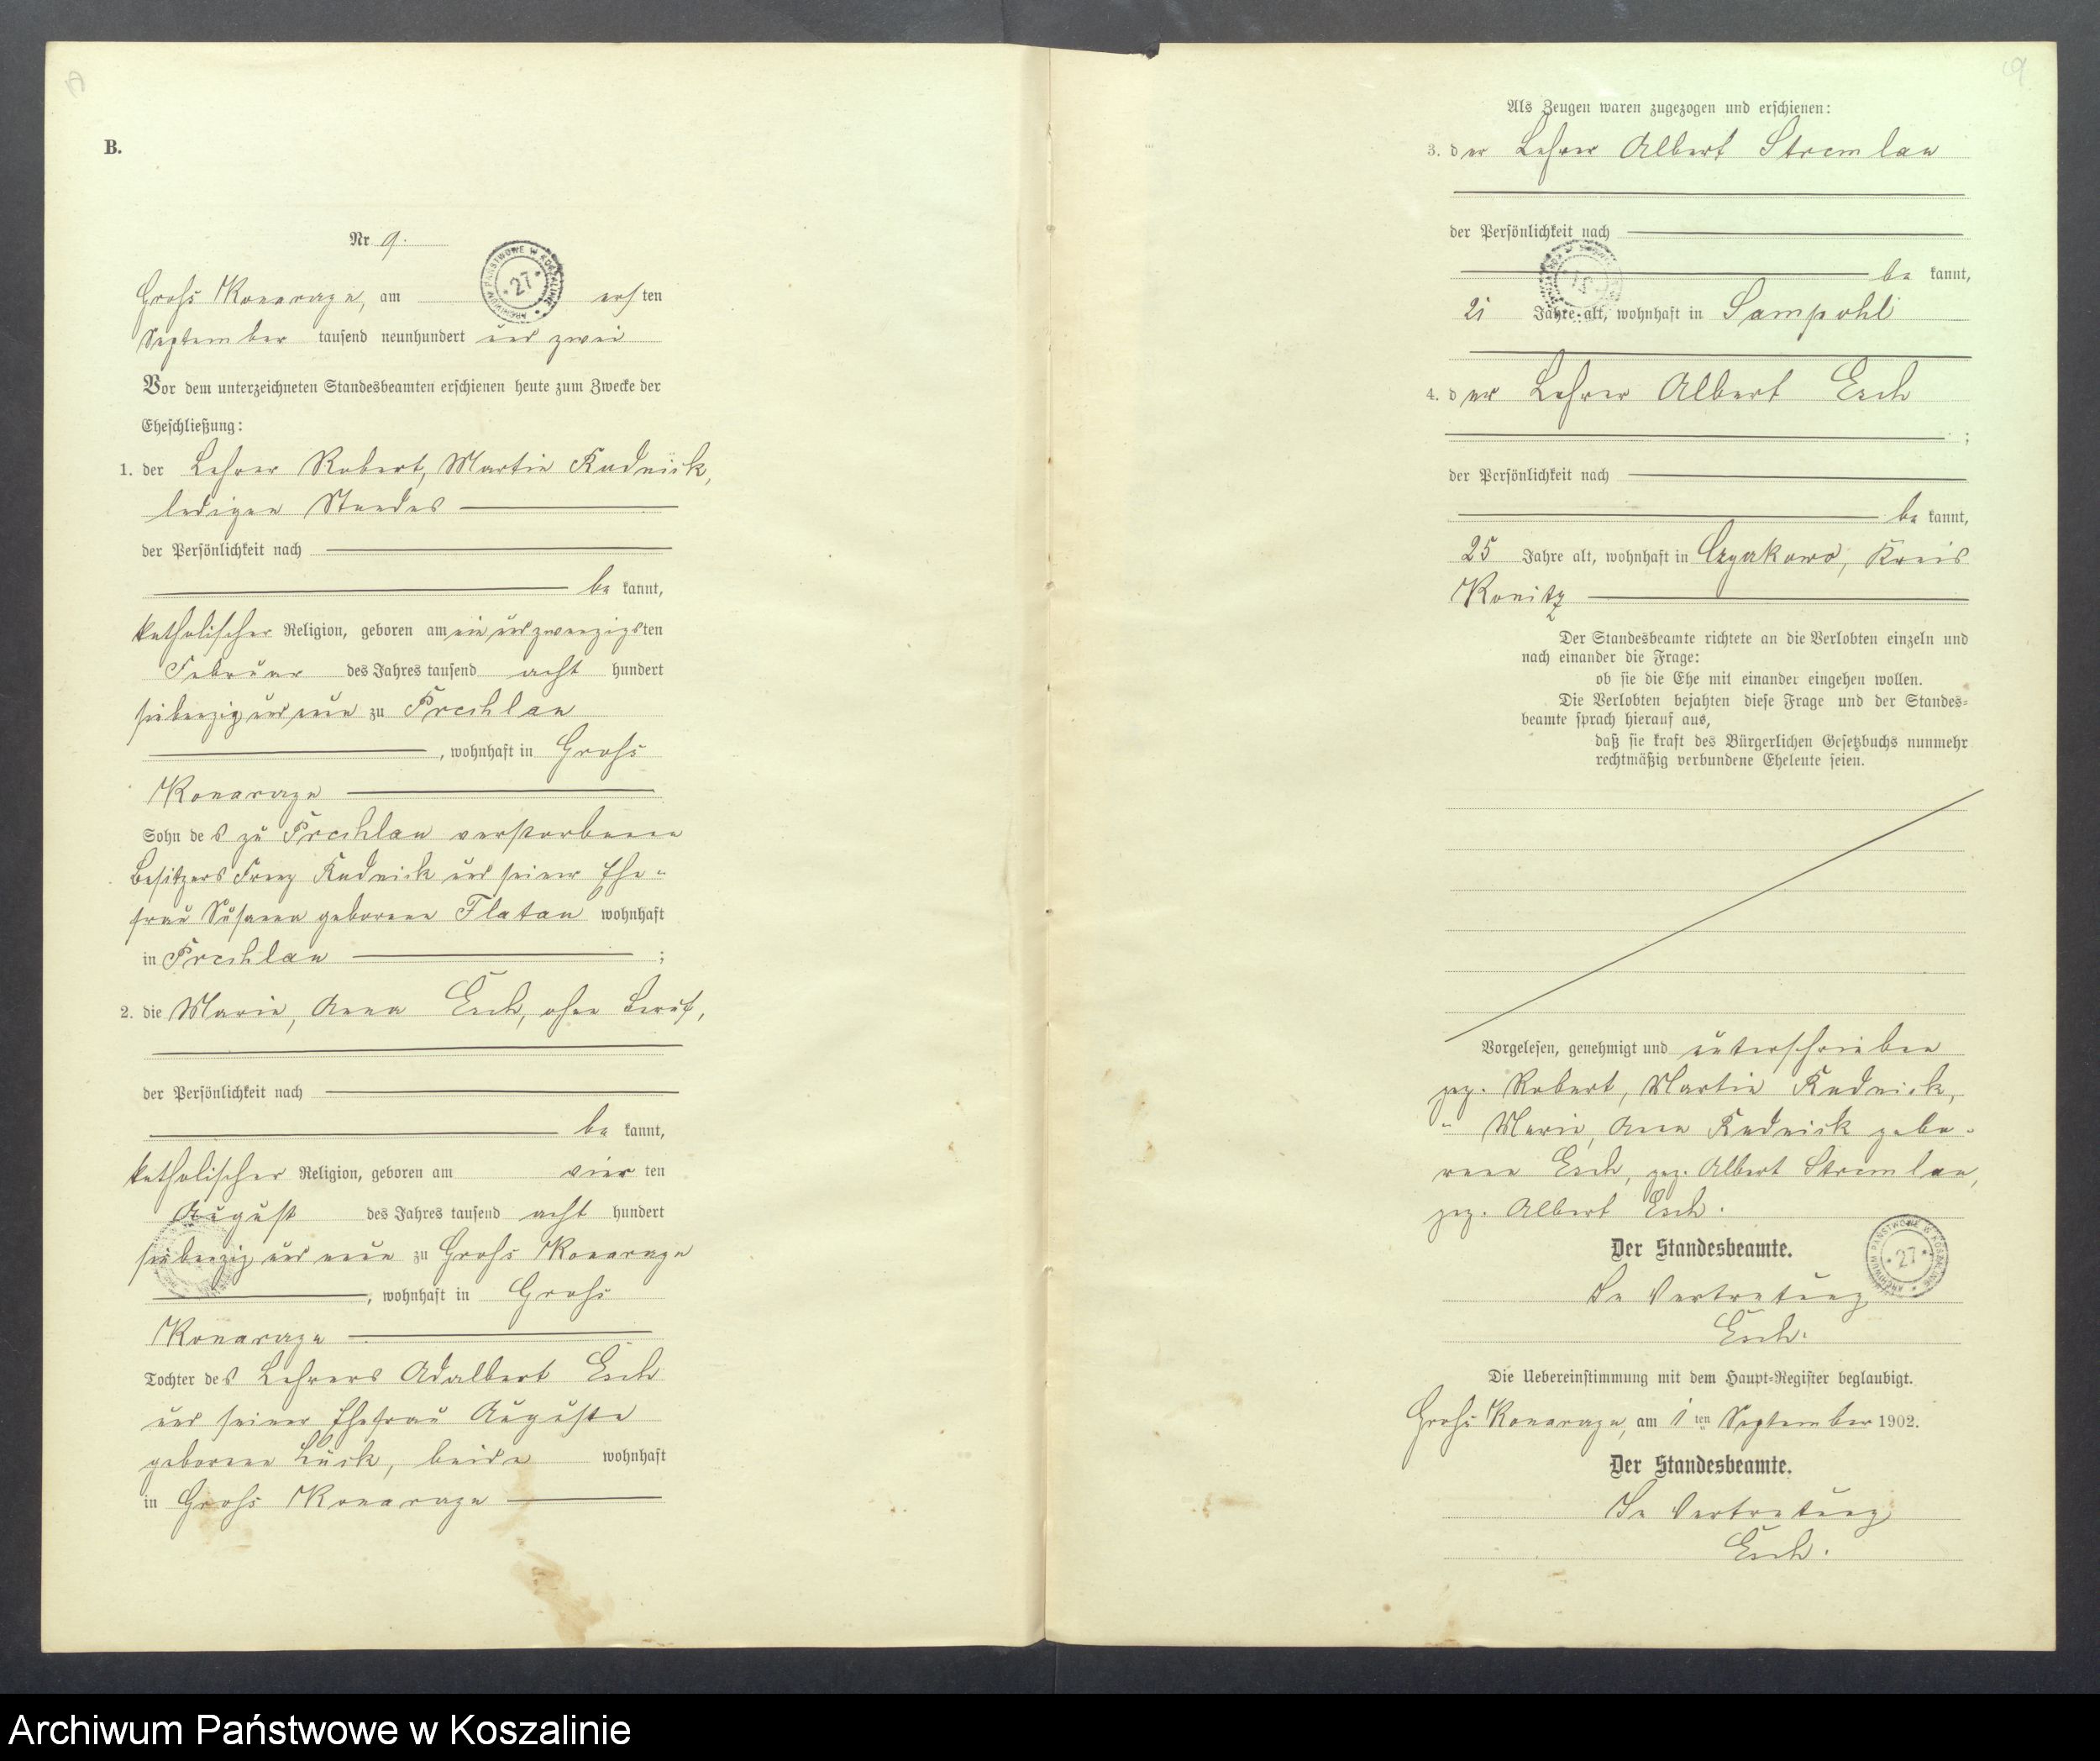 B.
Nr 9.
Groß Konarzyn, am ersten
September tausend neunhundert und zwei
Vor dem unterzeichneten Standesbeamten erschienen heute zum Zwecke der
Eheschließung:
1. der Lehrer Robert, Martin Rudnick,
ledigen Standes
der Persönlichkeit nach
bekannt,
katholischer Religion, geboren am ein und zwanzigsten
Februar des Jahres tausend acht hundert
siebenzig und neun zu Prechlau
, wohnhaft in Groß
Konarzyn
Sohn des zu Prechlau verstorbenen
Besitzers Franz Rudnick und seiner Ehe-
frau Susanna geborene Flatau wohnhaft
in Prechlau ;
2. die Marie, Anna Esch, ohne Beruf,
der Persönlichkeit nach
bekannt,
katholischer Religion, geboren am vierten
August des Jahres tausend acht hundert
siebenzig und neun zu Groß Konarzyn
, wohnhaft in Groß
Konarzyn
Tochter des Lehrers Adalbert Esch
und seiner Ehefrau Auguste
geborene Lück, beide wohnhaft
in Groß Konarzyn
Als Zeugen waren zugezogen und erschienen:
3. der Lehrer Albert Stremlau
der Persönlichkeit nach
bekannt,
Jahre alt, wohnhaft in Sampohl
4. der Lehrer Albert Esch
;
der Persönlichkeit nach
bekannt,
25 Jahre alt, wohnhaft in Kreis
Konitz
Der Standesbeamte richtete an die Verlobten einzeln und
nach einander die Frage:
ob sie die Ehe mit einander eingehen wollen.
Die Verlobten bejahten diese Frage und der Standes-
beamte sprach hierauf aus,
daß sie kraft des Bürgerlichen Gesetzbuchs nunmehr
rechtmäßig verbundene Eheleute seien.
Vorgelesen, genehmigt und unterschrieben
gez. Robert, Martin Rudnick,
" Marie, Anna Rudnick gebo-
rene Esch, gez. Albert Stremlau,
gez. Albert Esch.
Der Standesbeamte.
In Vertretung
Esch.
Die Uebereinstimmung mit dem Haupt-Register beglaubigt.
Groß Konarzyn, am 1ten September 1902.
Der Standesbeamte.
In Vertretung
Esch.
ARCHIWUM PAŃSTWOWE W KOSZALINIE
27
Archiwum Państwowe w Koszalinie